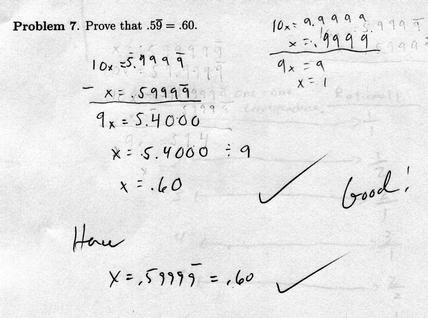 Problem 7. Prove that .59̅ = .60.
10x = 9.9999
x = .9999̅
9x = 9
x = 1
10x = 5.9999̅
- x = .59999̅
9x = 5.4000
x = 5.4000 ÷ 9
x = .60
Good!
x = .59999̅ = .60